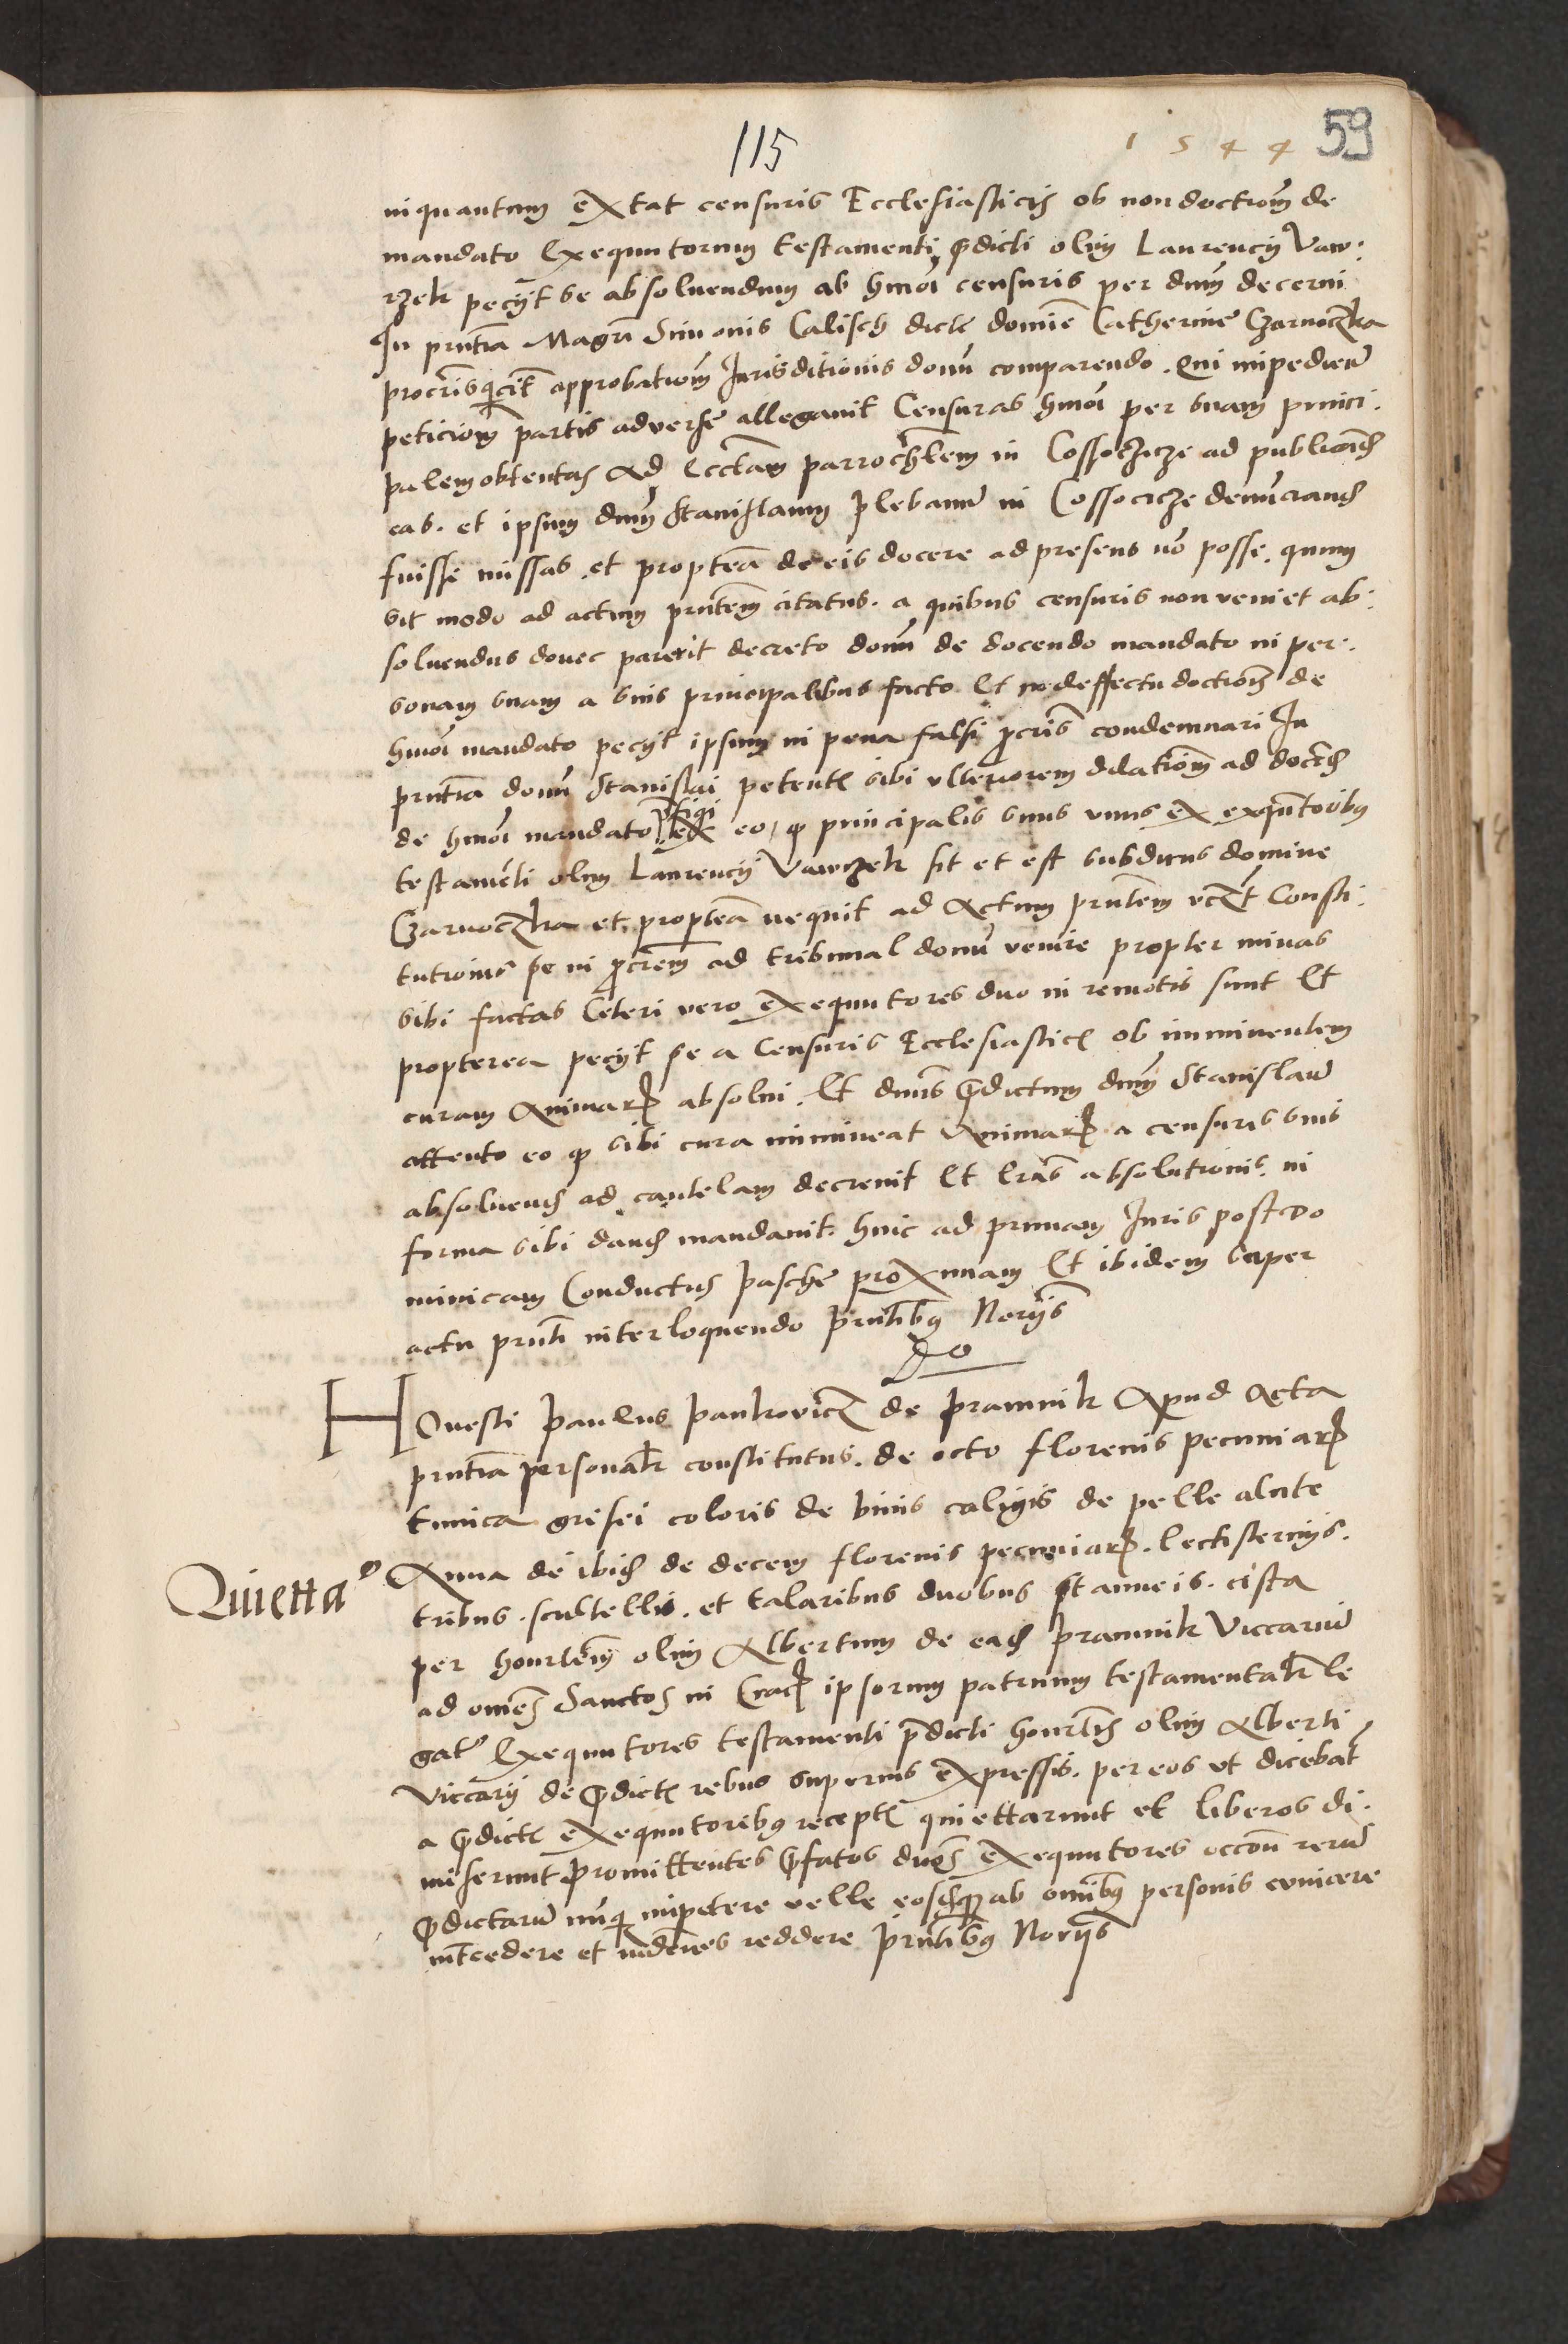 115
1544
59
inquantum extat censuris Ecclesiasticis ob non doctionem de
mandato Exequutorum testamenti p̃dicti olim Laurencij Vaw:
rzek pecijt se absoluendum ab hmoi censuris per dnum decerni
In pñtia Magri Simonis Calisch dicte domine Catherine Czarnoczka
procris citra approbationem Jurisditionis domi comparendo. Qui impediendo
peticionem partis adverse allegavit Censuras hmoi per suam princi:
palem obtentas Ad Ecctam parrochlem in Cossoczicze ad publicandum
eas. et ipsum dnum Stanislaum plebanum in Cossocicze denunciandum
fuisse missas. et propterea de eis docere ad presens no posse. quum
sit modo ad actum pñtem citatus. a quibus censuris non veniet ab:
soluendus donec parerit decreto domi de docendo mandato in per:
sonam suam a suis principalibus facto Et in deffectu doctionis de
hmoi mandato pecijt ipsum in pena falsi procris condemnari In
pñtia domi Stanislai petentis sibi ulteriorem dilationem ad docendum
de hmoi mandato ex eo, q̃ principalis suus unus ex exequutoribus
testamenti olim Laurencij Vawrzek sit et est subditus domine
Czarnoczka et propterea nequit ad Actum pñtem Consti:
tutionis se in procrem ad tribunal domi venire propter minas
sibi factas Ceteri vero exequutores duo in remotis sunt Et
propterea pecijt se a Censuris Ecclesiasticis ob imminentem
curam Animarum absolui. Et dnus p̃dictum dnum Stanislaum
attento eo q̃ sibi cura immineat Animarum a censuris suis
absoluendum ad cautelam decrevit Et lras absolutionis in
forma sibi dandas mandavit. hinc ad primam Juris post Do
minicam Conductus Pasche proximam Et ibidem super
actu pñti interloquendo pñtibus Norijs
Do
Honesti Paulus Paulrovicz de Pramnik Apud Acta
pñtia personalr constitutus. de octo florenis pecuniarum
tunica grisei coloris de binis caligis de pelle alute
Anna de ibidem de decem florenis pecuniarum. lectisternijs.
Quietta°
tribus. scultellis. et talaribus duobus stanneis. cista
per honorabilem olim Albertum de eadem Pramnik Viccarium
ad omes Sanctos in Crac ipsorum patruum testamentalr le
gatis Exequutores testamenti p̃dicti honorabilis olim Alberti
Viccarij de p̃dictis rebus superius expressis. per eos ut dicebant
a p̃dictis exequutoribus receptis quiettarunt et liberos di:
miserunt promittentes p̃fatos dnos exequutores occone rerum
p̃dictarum nunq̃ impetere velle eosdemque ab omibus personis evincere
intcedere et indemnes reddere pñtibus Norijs